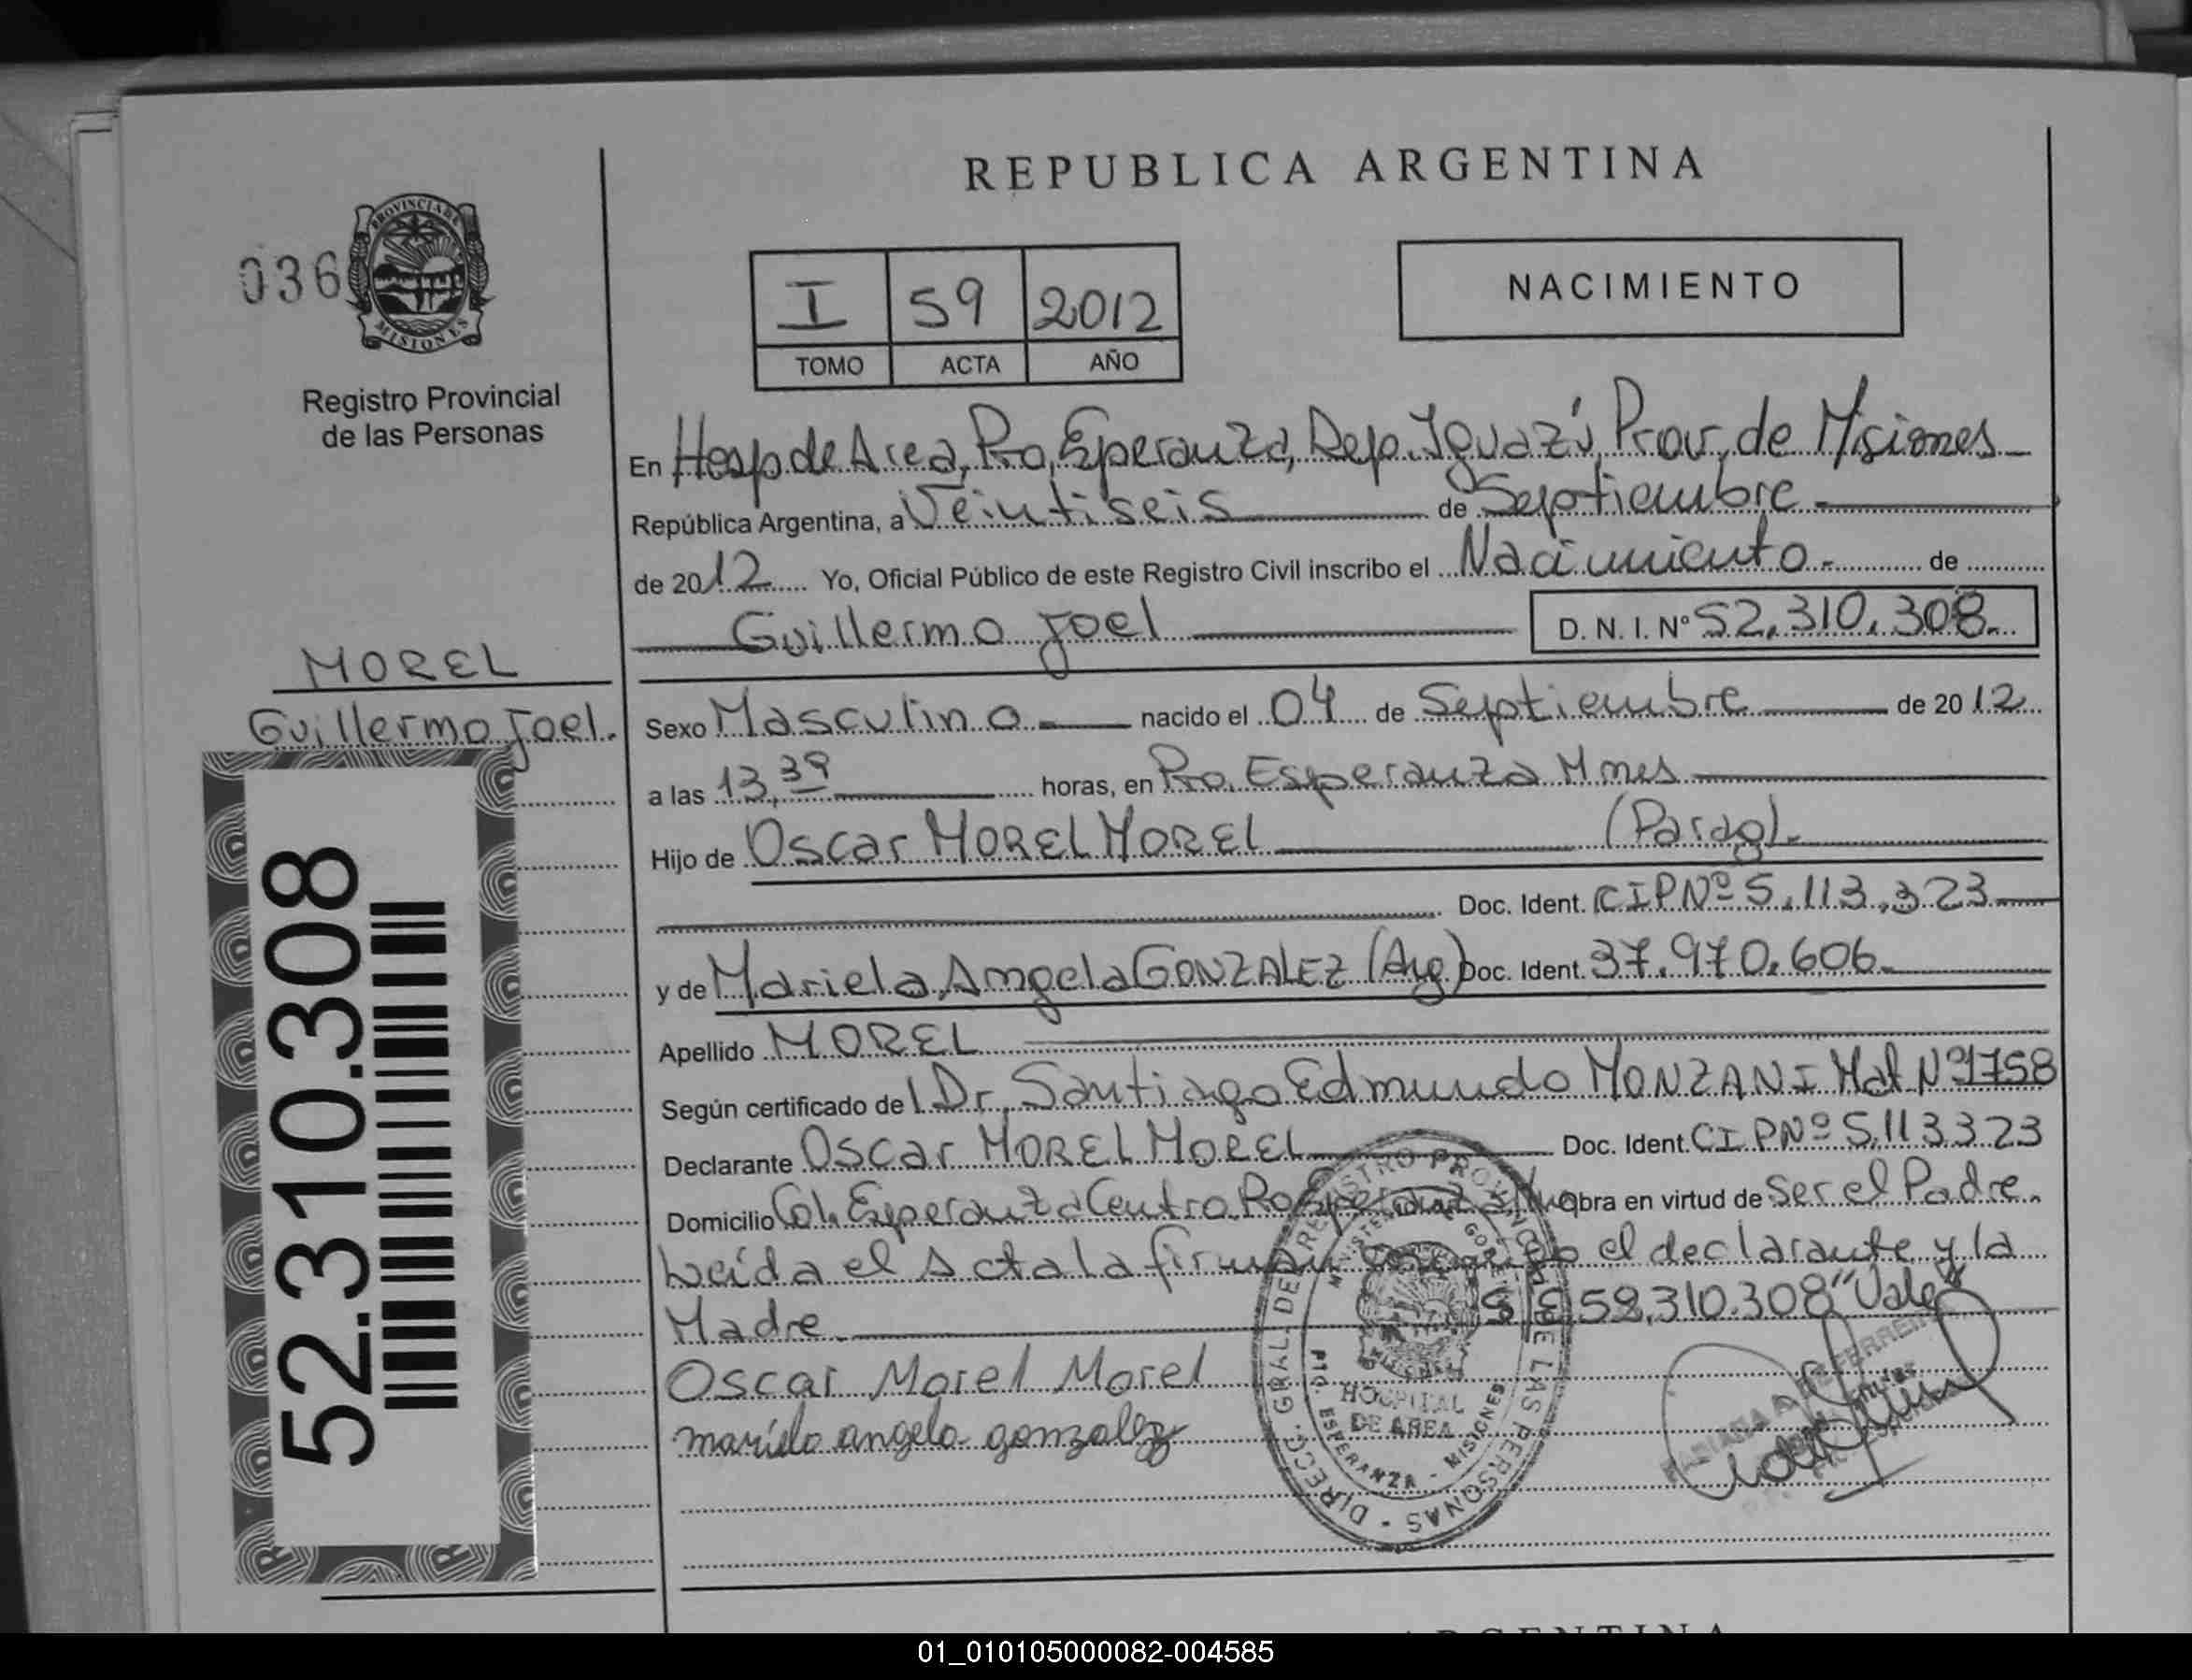 REPUBLICA ARGENTINA
036
PROVINCIA DE
MISIONES
Registro Provincial
de las Personas
I 59 2012
TOMO ACTA AÑO
NACIMIENTO
En Hosp de Area, Pto, Eperanza, Dep. Iguazú, Prov, de Misiones
República Argentina, a Veintiseis de Septiembre
de 2012 Yo, Oficial Público de este Registro Civil inscribo el Nacimiento. de
Guillermo Joel D.N.I. Nº 52,310,308
MOREL
Guillermo Joel.
Sexo Masculino nacido el 04 de Septiembre de 2012
a las 13,39 horas, en Pto. Esperanza Mnes
Hijo de Oscar MOREL MOREL (Parag).
Doc. Ident. C I P Nº 5,113,323
y de Mariela Angela GONZALEZ (Arg) Doc. Ident. 37.970.606
Apellido MOREL
Según certificado del Dr, Santiago Edmundo MONZANI Mat Nº 1758
Declarante Oscar MOREL MOREL Doc. Ident. C I P Nº 5,113323
Domicilio Col. Esperanza Centro Pto Esperanza Obra en virtud de Ser el Padre.
Leida el Acta la firman el declarante y la
Madre. S/E 52,310.308 "Vale
Oscar Morel Morel
mariela angela gonzalez
DIRECC. GRAL. DE REGISTRO PROVINCIAL DE LAS PERSONAS -
HOSPITAL
DE AREA
PTO. ESPERANZA - MISIONES
52.310.308
ARGENTINA
01_010105000082-004585